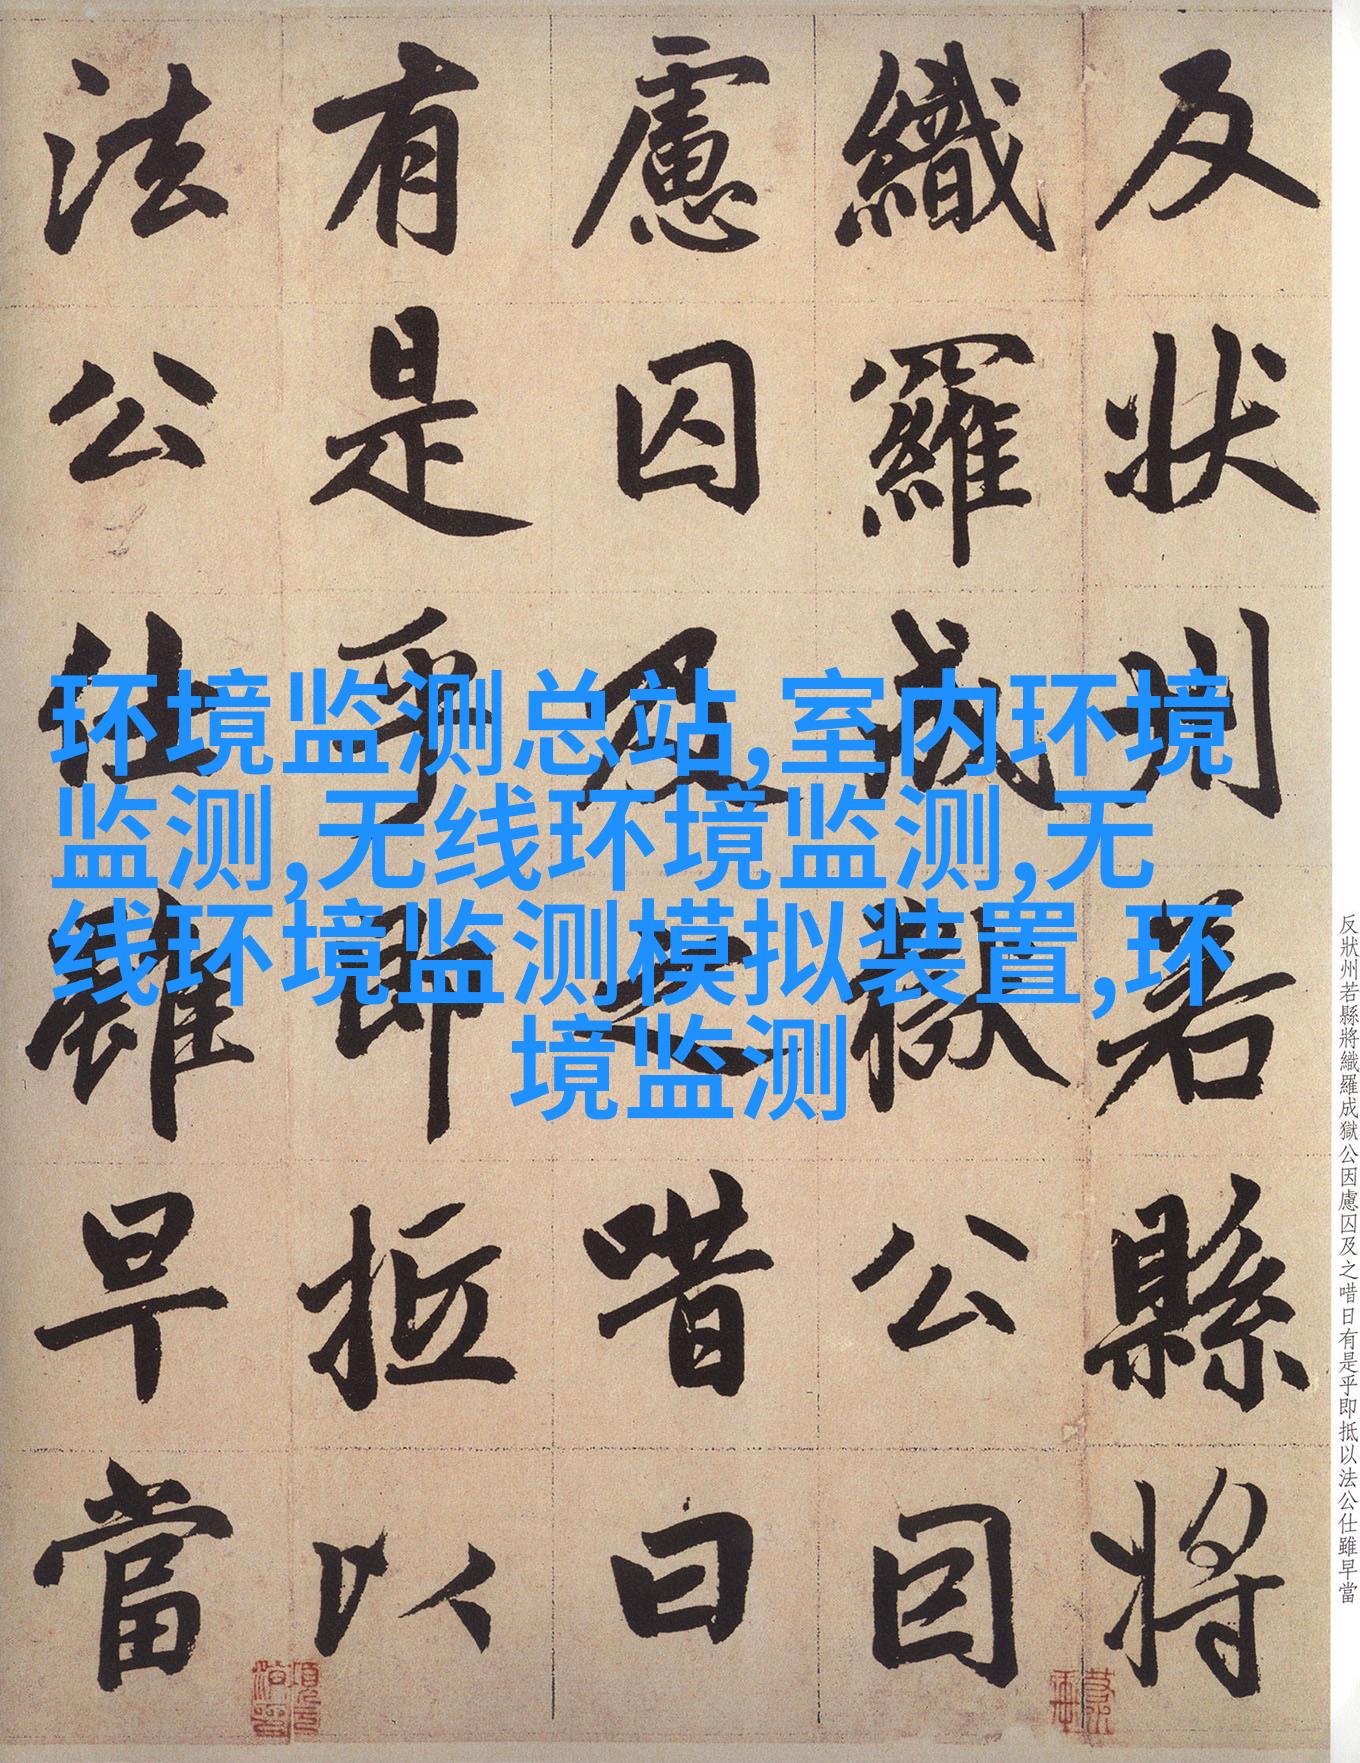 反状州若縣將
織羅成獄公因
慮囚及之唶曰
有是乎即抵以
法公仕雖早當
环境监测总站,室内环境
监测,无线环境监测,无
线环境监测模拟装置,环
境监测
反狀州若縣將織羅成獄公因慮囚及之唶日有是乎即抵以法公仕雖早當